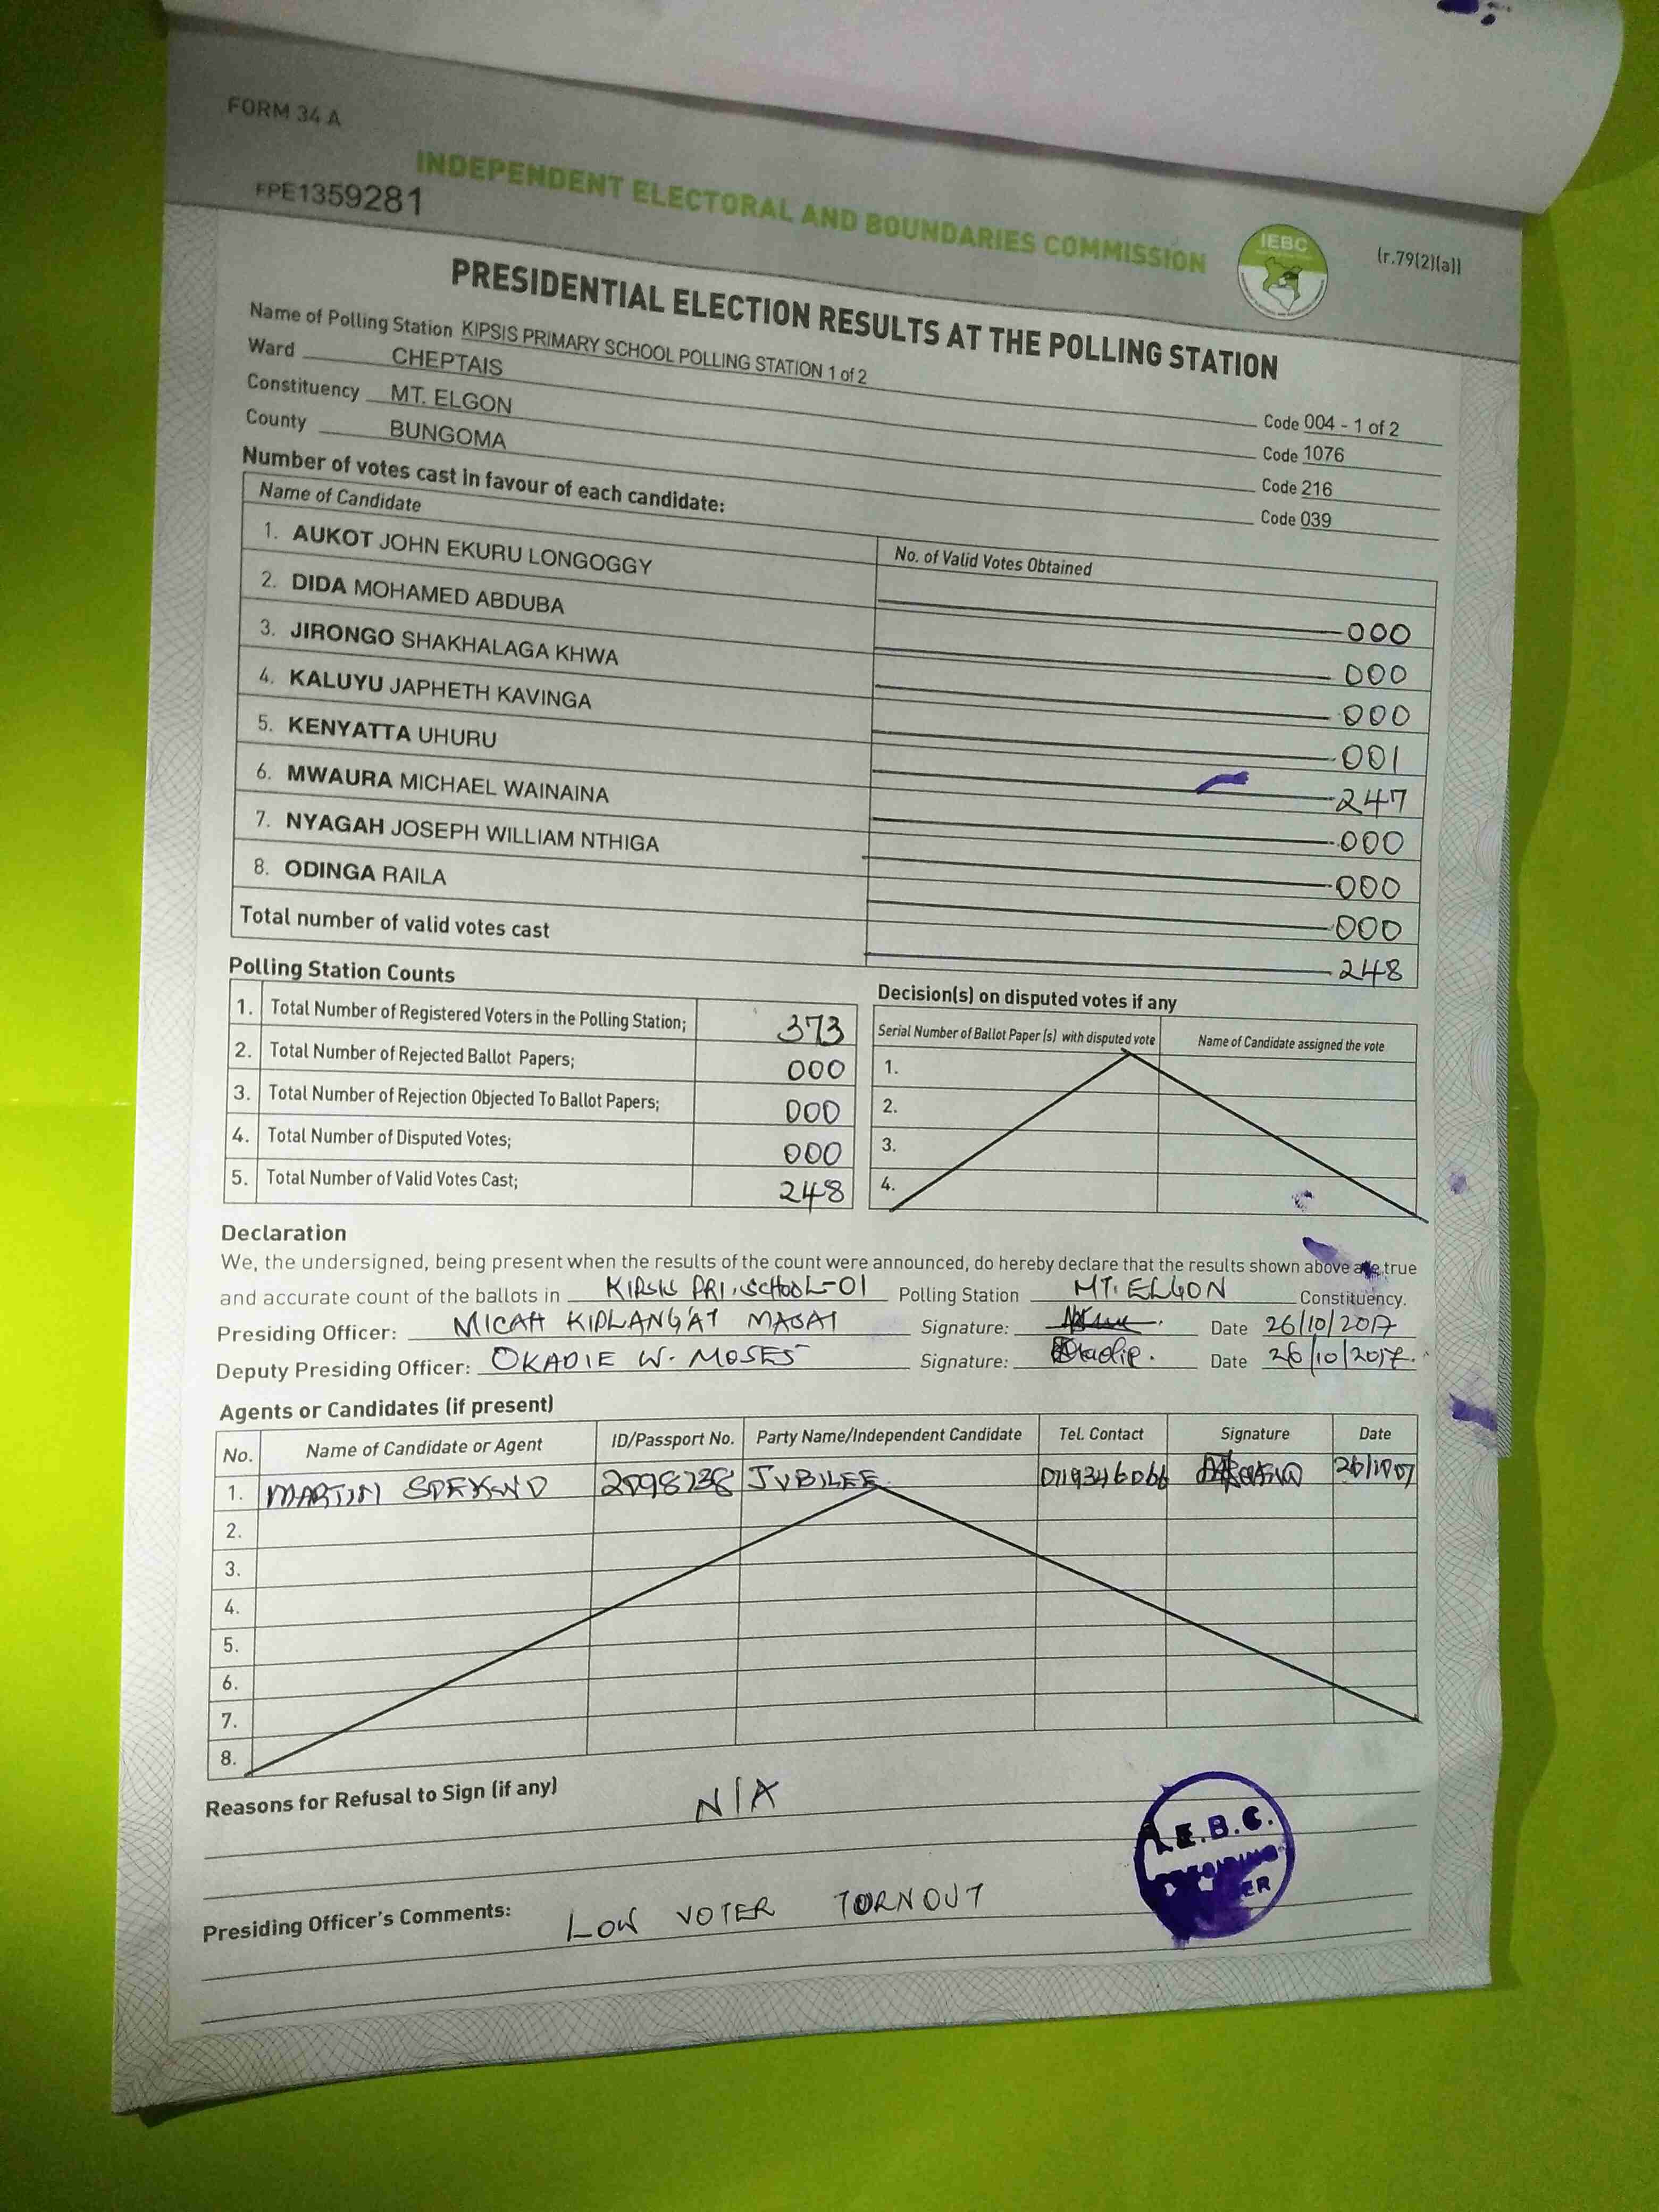 FORM 34 A
INDEPENDENT ELECTORAL AND BOUNDARIES COMMISSION
FPE1359281
IEBC
(r.79(2)(a))
PRESIDENTIAL ELECTION RESULTS AT THE POLLING STATION
Name of Polling Station KIPSIS PRIMARY SCHOOL POLLING STATION 1 of 2 Code 004 - 1 of 2
Ward CHEPTAIS Code 1076
Constituency MT. ELGON Code 216
County BUNGOMA Code 039
Number of votes cast in favour of each candidate:
Name of Candidate No. of Valid Votes Obtained
1. AUKOT JOHN EKURU LONGOGGY 000
2. DIDA MOHAMED ABDUBA 000
3. JIRONGO SHAKHALAGA KHWA 000
4. KALUYU JAPHETH KAVINGA 001
5. KENYATTA UHURU 247
6. MWAURA MICHAEL WAINAINA 000
7. NYAGAH JOSEPH WILLIAM NTHIGA 000
8. ODINGA RAILA 000
Total number of valid votes cast 248
Polling Station Counts
1. Total Number of Registered Voters in the Polling Station; 373
2. Total Number of Rejected Ballot Papers; 000
3. Total Number of Rejection Objected To Ballot Papers; 000
4. Total Number of Disputed Votes; 000
5. Total Number of Valid Votes Cast; 248
Decision(s) on disputed votes if any
Serial Number of Ballot Paper (s) with disputed vote Name of Candidate assigned the vote
1.
2.
3.
4.
Declaration
We, the undersigned, being present when the results of the count were announced, do hereby declare that the results shown above are true
and accurate count of the ballots in KIPSIS PRI. SCHOOL-01 Polling Station MT. ELGON Constituency.
Presiding Officer: MICAH KIPLANG'AT MASAI Signature: Date 26/10/2017
Deputy Presiding Officer: OKADIE W. MOSES Signature: Okadie. Date 26/10/2017.
Agents or Candidates (if present)
No. Name of Candidate or Agent ID/Passport No. Party Name/Independent Candidate Tel. Contact Signature Date
1. MARTIN JUBILEE
2.
3.
4.
5.
6.
7.
8.
Reasons for Refusal to Sign (if any) N/A
I.E.B.C.
PRESIDING
Presiding Officer's Comments: LOW VOTER TORNOUT